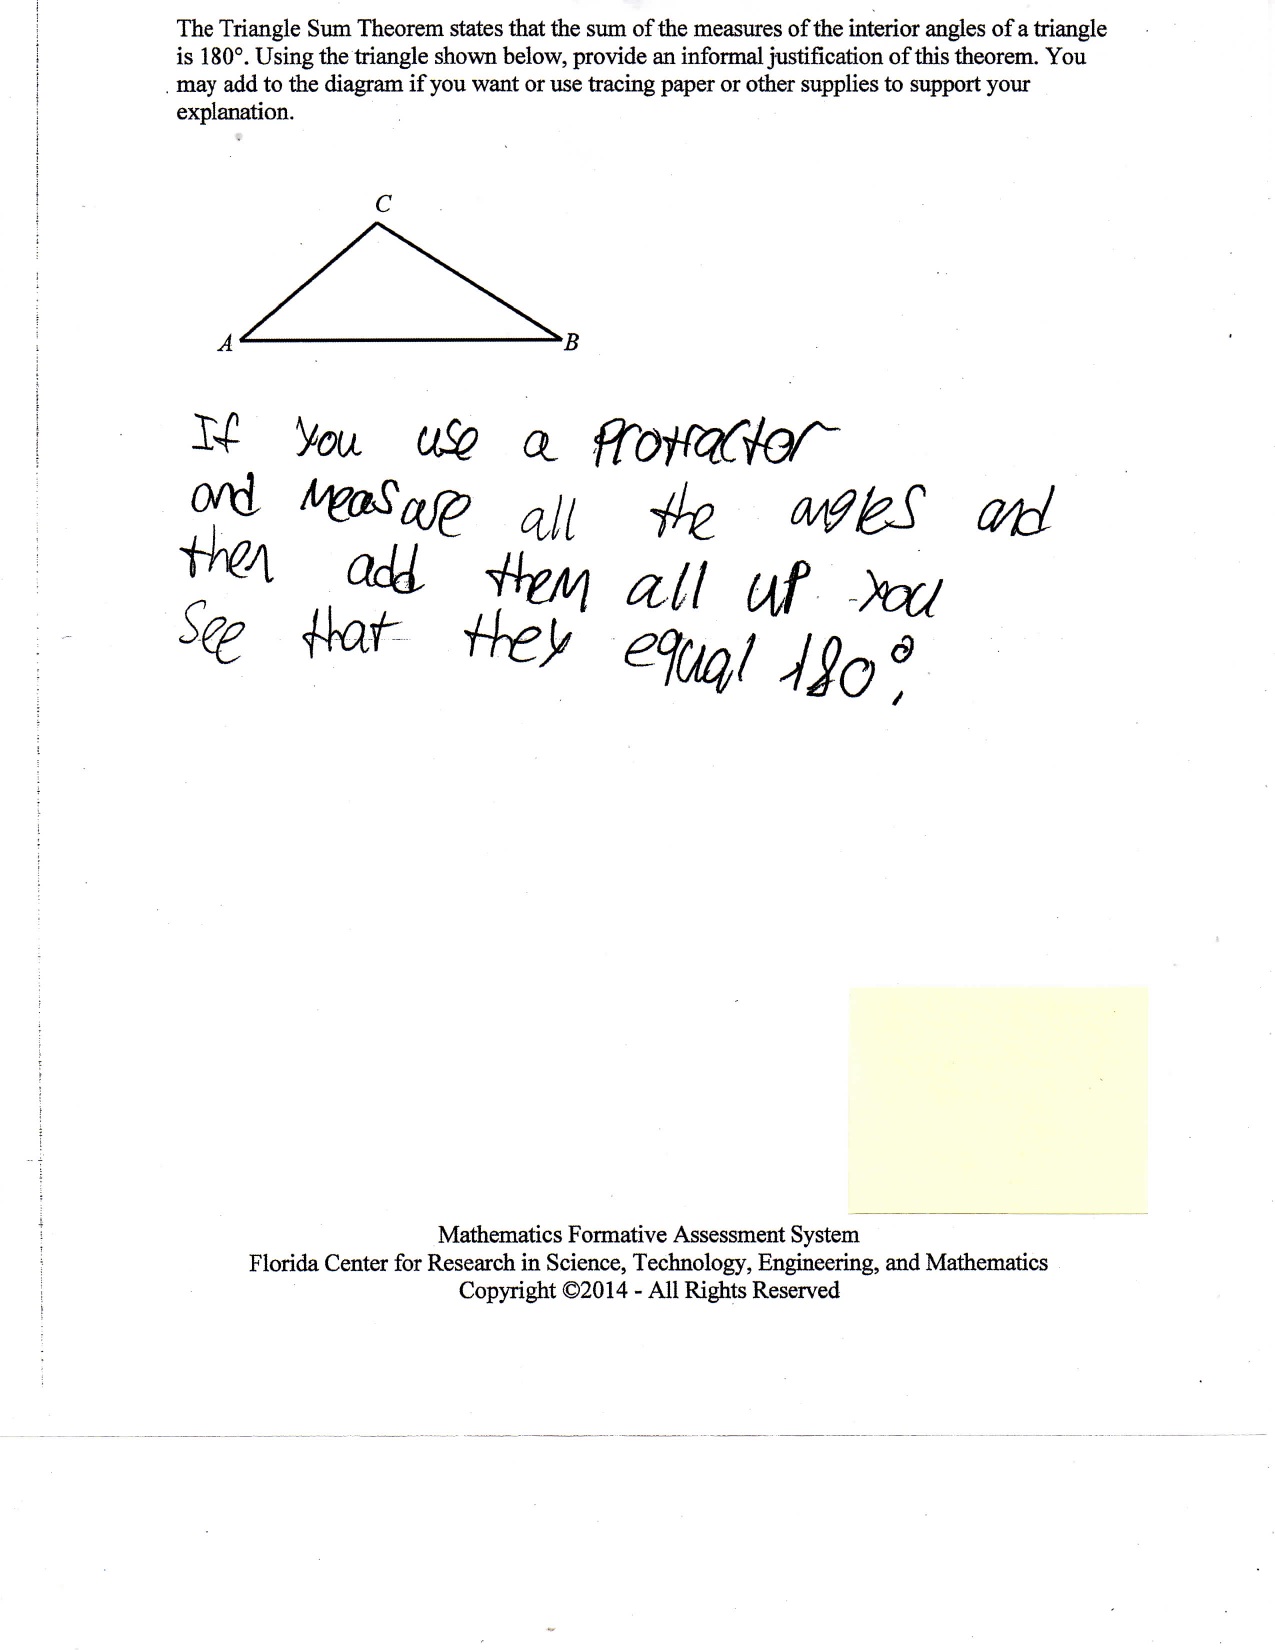 The Triangle Sum Theorem states that the sum of the measures of the interior angles of a triangle
is 180°. Using the triangle shown below, provide an informal justification of this theorem. You
may add to the diagram if you want or use tracing paper or other supplies to support your
explanation.
C
A
B
If you use a protractor
and measure all the angles and
then add them all up you
see that they equal 180°.
Mathematics Formative Assessment System
Florida Center for Research in Science, Technology, Engineering, and Mathematics
Copyright ©2014 - All Rights Reserved